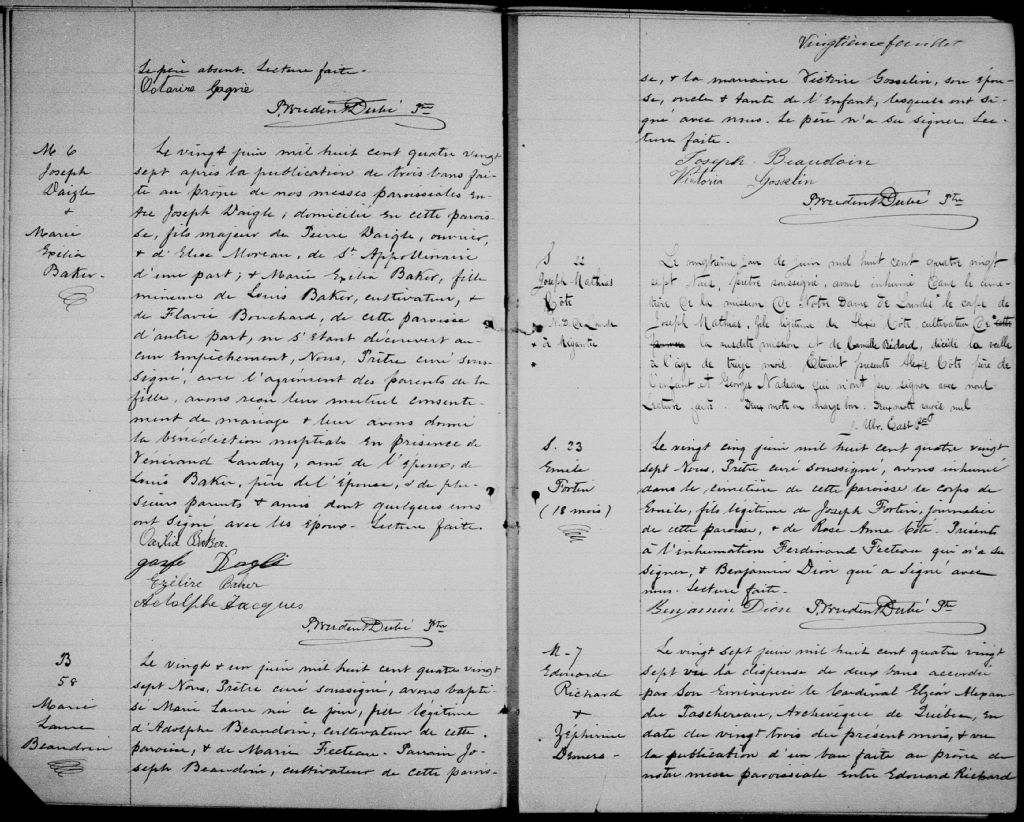 Le père absent. Lecture faite.
Octavire Gagné
P. Prudent Dubé Ptre
M 6
Joseph
Daigle
+
Marie
Exilia
Baker.
Le vingt juin mil huit cent quatre vingt
sept après la publication de trois bans fai-
te au prône de nos messes paroissiales en-
tre Joseph Daigle, domicilié en cette parois-
se, fils majeur de Pierre Daigle, ouvrier,
& d'Elise Moreau, de St Appollinaire
d'une part; & Marie Exilia Baker, fille
mineure de Louis Baker, cultivateur, &
de Flavie Bouchard, de cette paroisse
d'autre part, ne s'étant découvert au-
cun empêchement, Nous, Prêtre curé sous-
signé, avec l'agrément des parents de la
fille, avons reçu leur mutuel consente-
ment de mariage & leur avons donné
la bénédiction nuptiale en présence de
Vénérand Landry, ami de l'époux, de
Louis Baker, père de l'épouse, & de plu-
sieurs parents & amis dont quelques uns
ont signé avec les époux. Lecture faite.
Baker.
Daglé
Exélire Baker
Adolphe Jacques
P. Prudent Dubé Ptre
B
58
Marie
Laure
Beaudoin
Le vingt & un juin mil huit cent quatre vingt
sept Nous, Prêtre curé soussigné, avons bapti-
sé Marie Laure née ce jour, fille légitime
d'Adolphe Beaudoin, cultivateur de cette
paroisse, & de Marie Fecteau. Parrain Jo-
seph Beaudoin, cultivateur de cette parois-
Vingtième feuillet
se, & la marraine Victoire Gosselin, son épou-
se, oncle & tante de l'Enfant, lesquels ont si-
gné avec nous. Le père n'a su signer. Lec-
ture faite.
Joseph Beaudoin
Victoria Gosselin
P. Prudent Dubé Ptre
S 22
Joseph Mathias
Côté
N. D. de Lourdes
+ de Mégantic
Le vingtième jour de juin mil huit cent quatre vingt
sept Nous, prêtre soussigné, avons inhumé dans le cime-
tière de la mission de Notre Dame de Lourdes le corps de
Joseph Mathias, fils légitime de Alexis Côté cultivateur de cette
la susdite mission et de Camille Bédard, décédé la veille
à l'âge de treize mois. Etaient présents Alexis Côté père de
l'enfant et Georges Nadeau qui n'ont pu signer avec nous
Lecture faite. Deux mots en marge bon. Deux mots rayés nul
S. 23
Emile
Fortin
(18 mois)
Le vingt cinq juin mil huit cent quatre vingt
sept Nous, Prêtre curé soussigné, avons inhumé
dans le cimetière de cette paroisse le corps de
Emile, fils légitime de Joseph Fortin, journalier
de cette paroisse, & de Rose Anna Côté. Présents
à l'inhumation Ferdinand Fecteau qui n'a su
signer, & Benjamin Dion qui a signé avec
nous. Lecture faite.
Benjamin Dion P. Prudent Dubé Ptre
M - 7
Edouard
Richard
+
Zéphirine
Demers
Le vingt sept juin mil huit cent quatre vingt
sept vu la dispense de deux bans accordée
par Son Eminence le Cardinal Elzéar Alexan-
dre Taschereau, Archevêque de Québec, en
date du vingt trois du présent mois, & vu
la publication d'un ban faite au prône de
notre messe paroissiale entre Edouard Richard